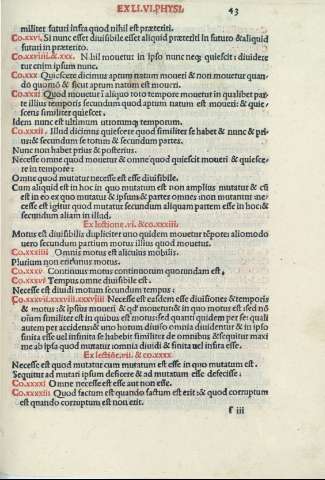 EX LI. VI PHYSI. 43
militer futuri infra quod nihil est præteriti.
Co.xxvi. Si nunc esset diuisibile esset aliquid præteriti in futuro &aliquid
futuri in præterito.
Co.xxviiii.&.xxx. Nihil mouetur in ipso nunc neq; quiescit: diuidere
tur enim ipsum nunc.
Co.xxx Quiescere dicimus aptum natum moueri & non mouetur quan
do quomo & sicut aptum natum est moueri.
Co.xxxi Quod mouetur ī aliquo toto tempore mouetur in qualibet par
te illius temporis secundum quod aptum natum est moueri: & quie
scens similiter quiescet.
Idem nunc est ultimum utrorumq; temporum.
Co.xxxii. Illud dicimus quiescere quod similiter se habet & nunc & pri
us: & secundum se totum & secundum partes.
Nunc non habet prius & posterius.
Necesse omne quod mouetur & omne quod quiescit moueri & quiesce
re in tempore:
Omne quod mutatur necesse est esse diuisibile.
Cum aliquid est in hoc in quo mutatum est non amplius mutatur & cū
est in eo ex quo mutatur & ipsum & partes omnes: non mutantur ne
cesse est igitur quod mutatur secundum aliquam partem esse in hoc: &
secundum aliam in illud.
Ex lectione .vi. & co.xxxiii:
Motus est diuisibilis dupliciter uno quidem mouetur tēpore: aliomodo
uero secundum partium motus illius quod mouetur.
Co.xxxiiii Omnis motus est alicuius mobilis.
Plurium non est unus motus.
Co.xxxv. Continuus motus continuorum quorundam est,
Co.xxxvi Tempus omne diuisibile est.
Necesse est diuidi motum secundum tempus:
Co.xxxvii.xxxviii.xxxviiii Necesse est easdem esse diuisiones & temporis
& motus: & ipsius moueri & qd mouetur & in quo motus est: sed nō
oīum similiter est in quibus est motus: sed quanti quidem per se: quali
autem per accidens: & uno horum diuiso omnia diuidentur & in ipso
finita esse uel infinita se habebit similiter de omnibus & sequitur maxi
me ab ipsa quod mutatur omnia diuidi & finita uel infita esse.
Ex lectiōe.vii. & co.xxxx
Necesse est quod mutatur cum mutatum est esse in quo mutatum est.
Sequitur ad mutari ipsum desicere & ad mutatum esse defecisse:
Co.xxxxi Omne necesse est esse aut non esse.
Co.xxxxiii Quod factum est quando factum est erit: & quod corruptum
est quando corruptum est non erit.
f iii